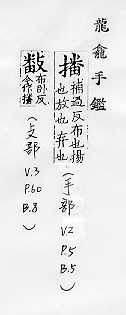 龍龕手鑑
播 補過反布也揚也放也弃也
(手部 V.2 P.5 B.5)
布卧反今作播
(支部 V.3 P.60 B.8)